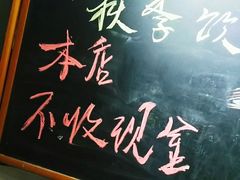 秋季饮
本店
不收现金